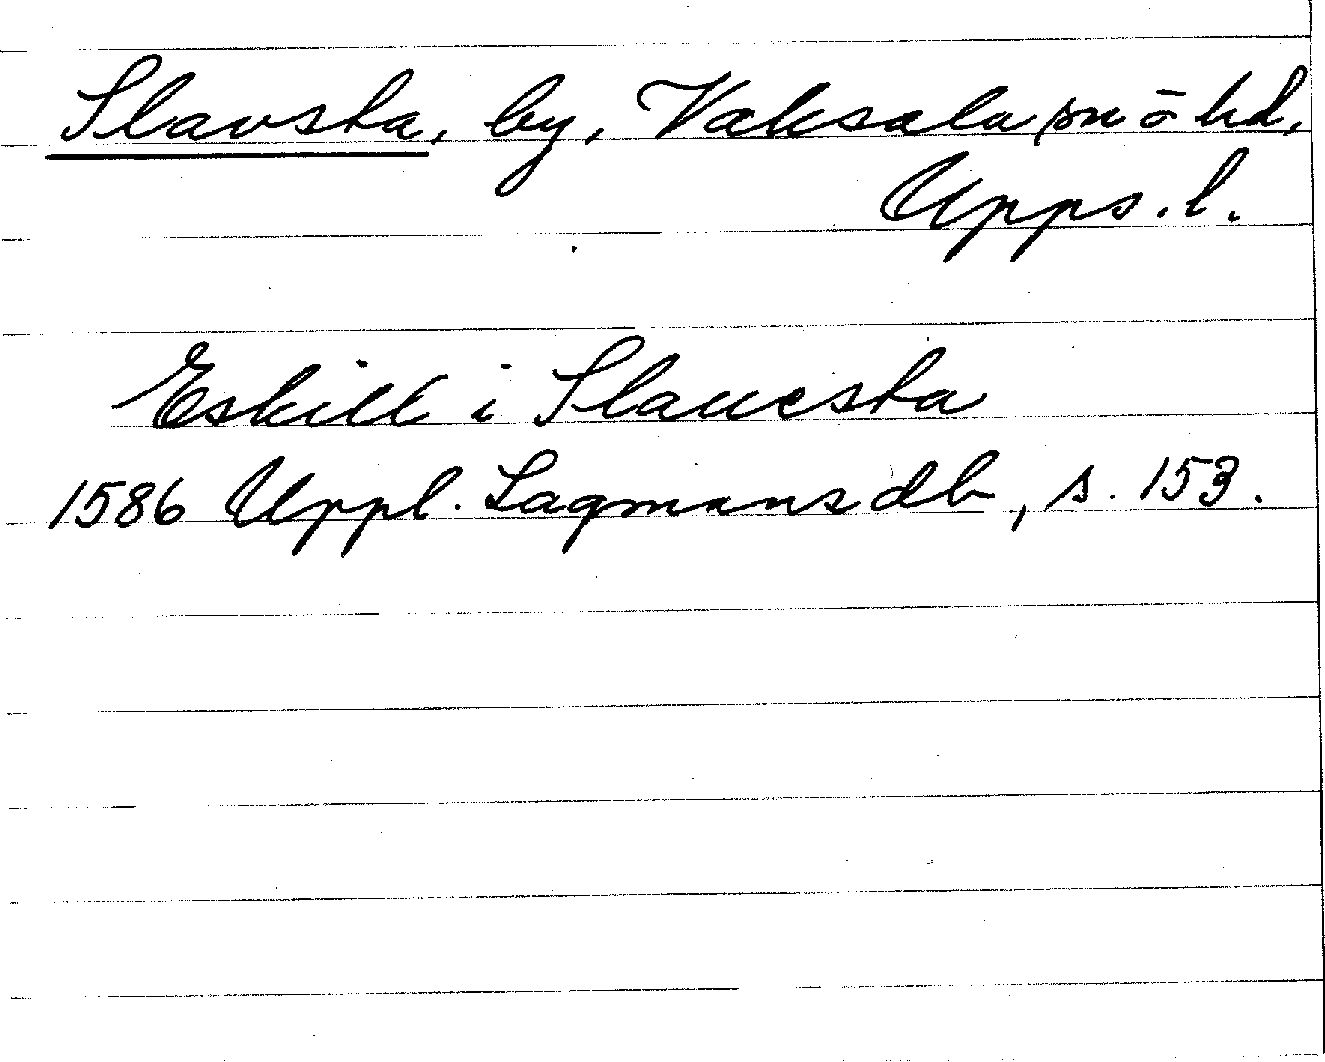 Slavsta, by, Vaksala sn ō hd,
Upps. l.
Eskill i Slauesta
1586 Uppl. Lagmansdb, s. 153.